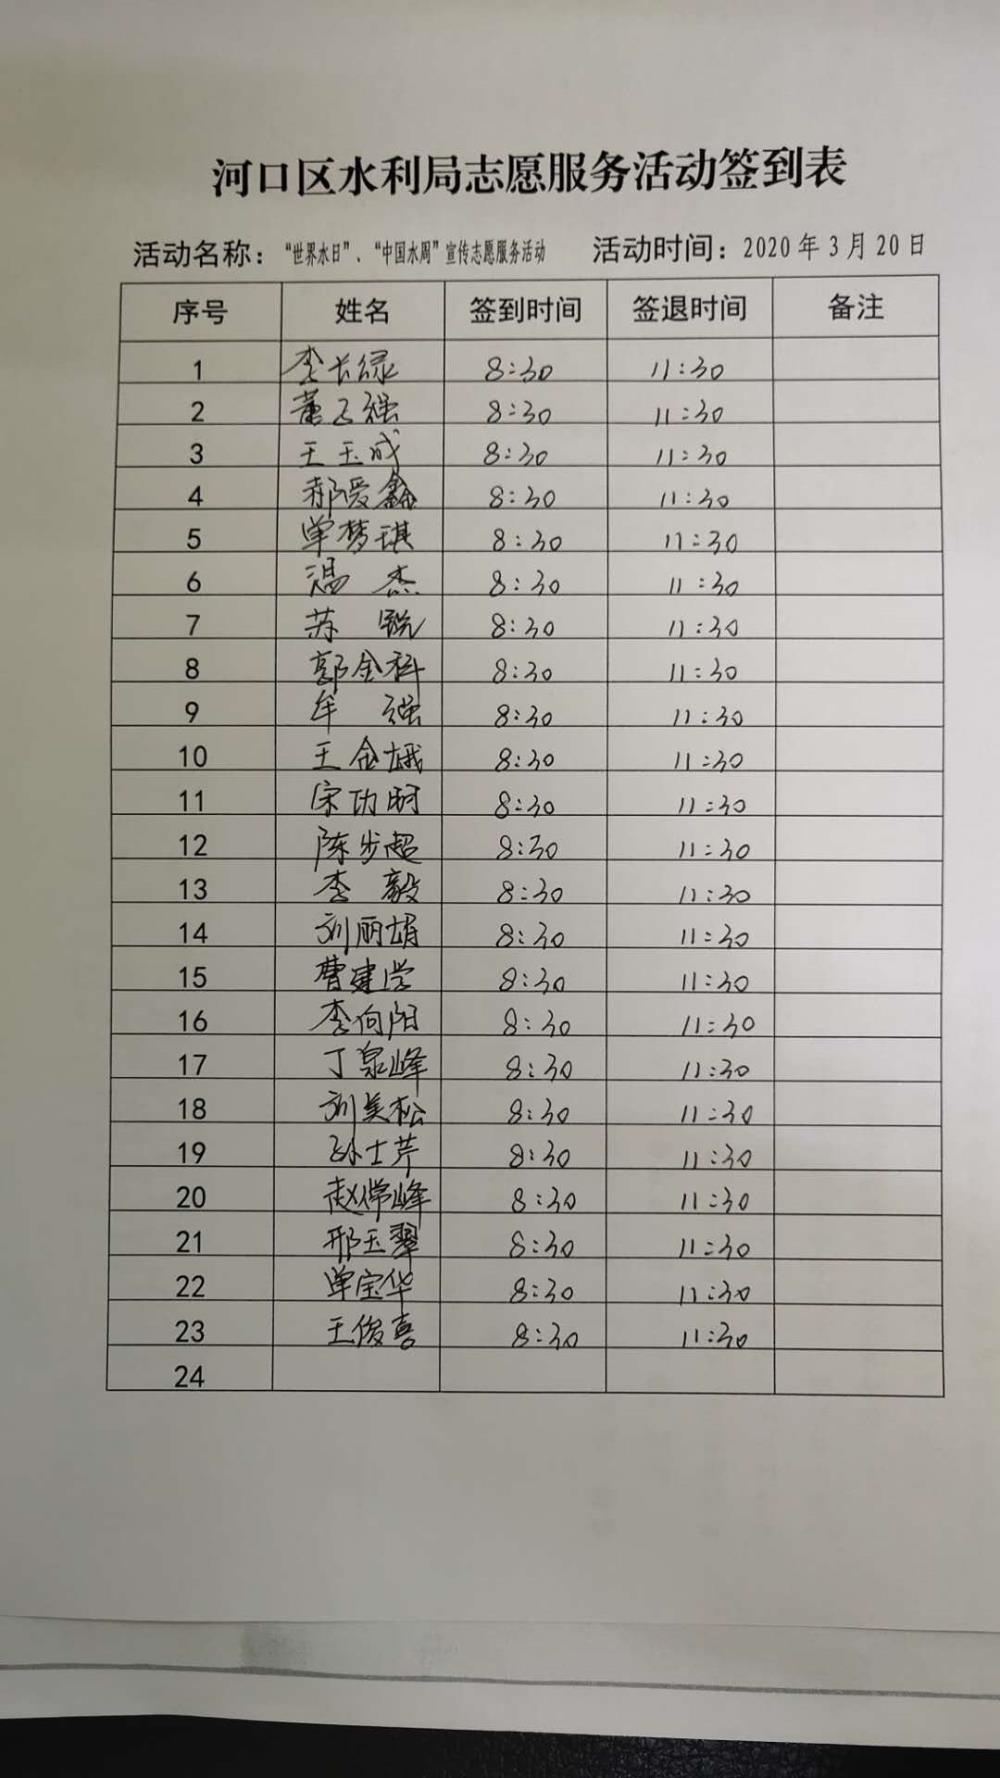 河口区水利局志愿服务活动签到表
活动名称：“世界水日”、“中国水周”宣传志愿服务活动 活动时间：2020年3月20日
序号 姓名 签到时间 签退时间 备注
1 李长绿 8:30 11:30
2 董玉强 8:30 11:30
3 王玉成 8:30 11:30
4 郝爱鑫 8:30 11:30
5 单梦琪 8:30 11:30
6 温杰 8:30 11:30
7 苏锐 8:30 11:30
8 郭金科 8:30 11:30
9 牟强 8:30 11:30
10 王金娥 8:30 11:30
11 宋功 8:30 11:30
12 陈步超 8:30 11:30
13 李毅 8:30 11:30
14 刘丽娟 8:30 11:30
15 曹建学 8:30 11:30
16 李向阳 8:30 11:30
17 丁泉峰 8:30 11:30
18 刘美松 8:30 11:30
19 孙士芹 8:30 11:30
20 赵常峰 8:30 11:30
21 邢玉翠 8:30 11:30
22 单宝华 8:30 11:30
23 王俊喜 8:30 11:30
24